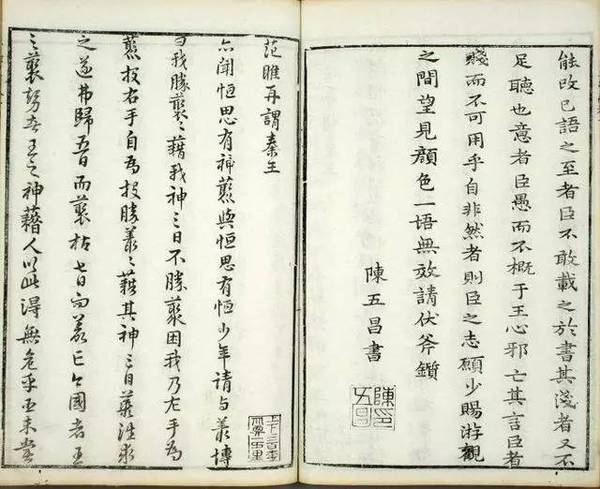 能改已語之至者臣不敢載之於書其淺者又不
足聽也意者臣愚而不概于王心邪亡其言臣者
賤而不可用乎自非然者則臣之志願少賜游觀
之間望見顏色一語無效請伏斧鑕
陳五昌書
陳五昌印
范睢再謂秦王
亦聞恒思有神叢與恒思有恒少年請与叢博
曰我勝叢叢藉我神三日不勝叢困我乃左手為
叢投右手自為投勝叢叢藉其神三日叢往求
之遂弗歸五日而叢枯七日而叢亡今國者王
之叢勢者王之神藉人以此得無危乎臣未嘗